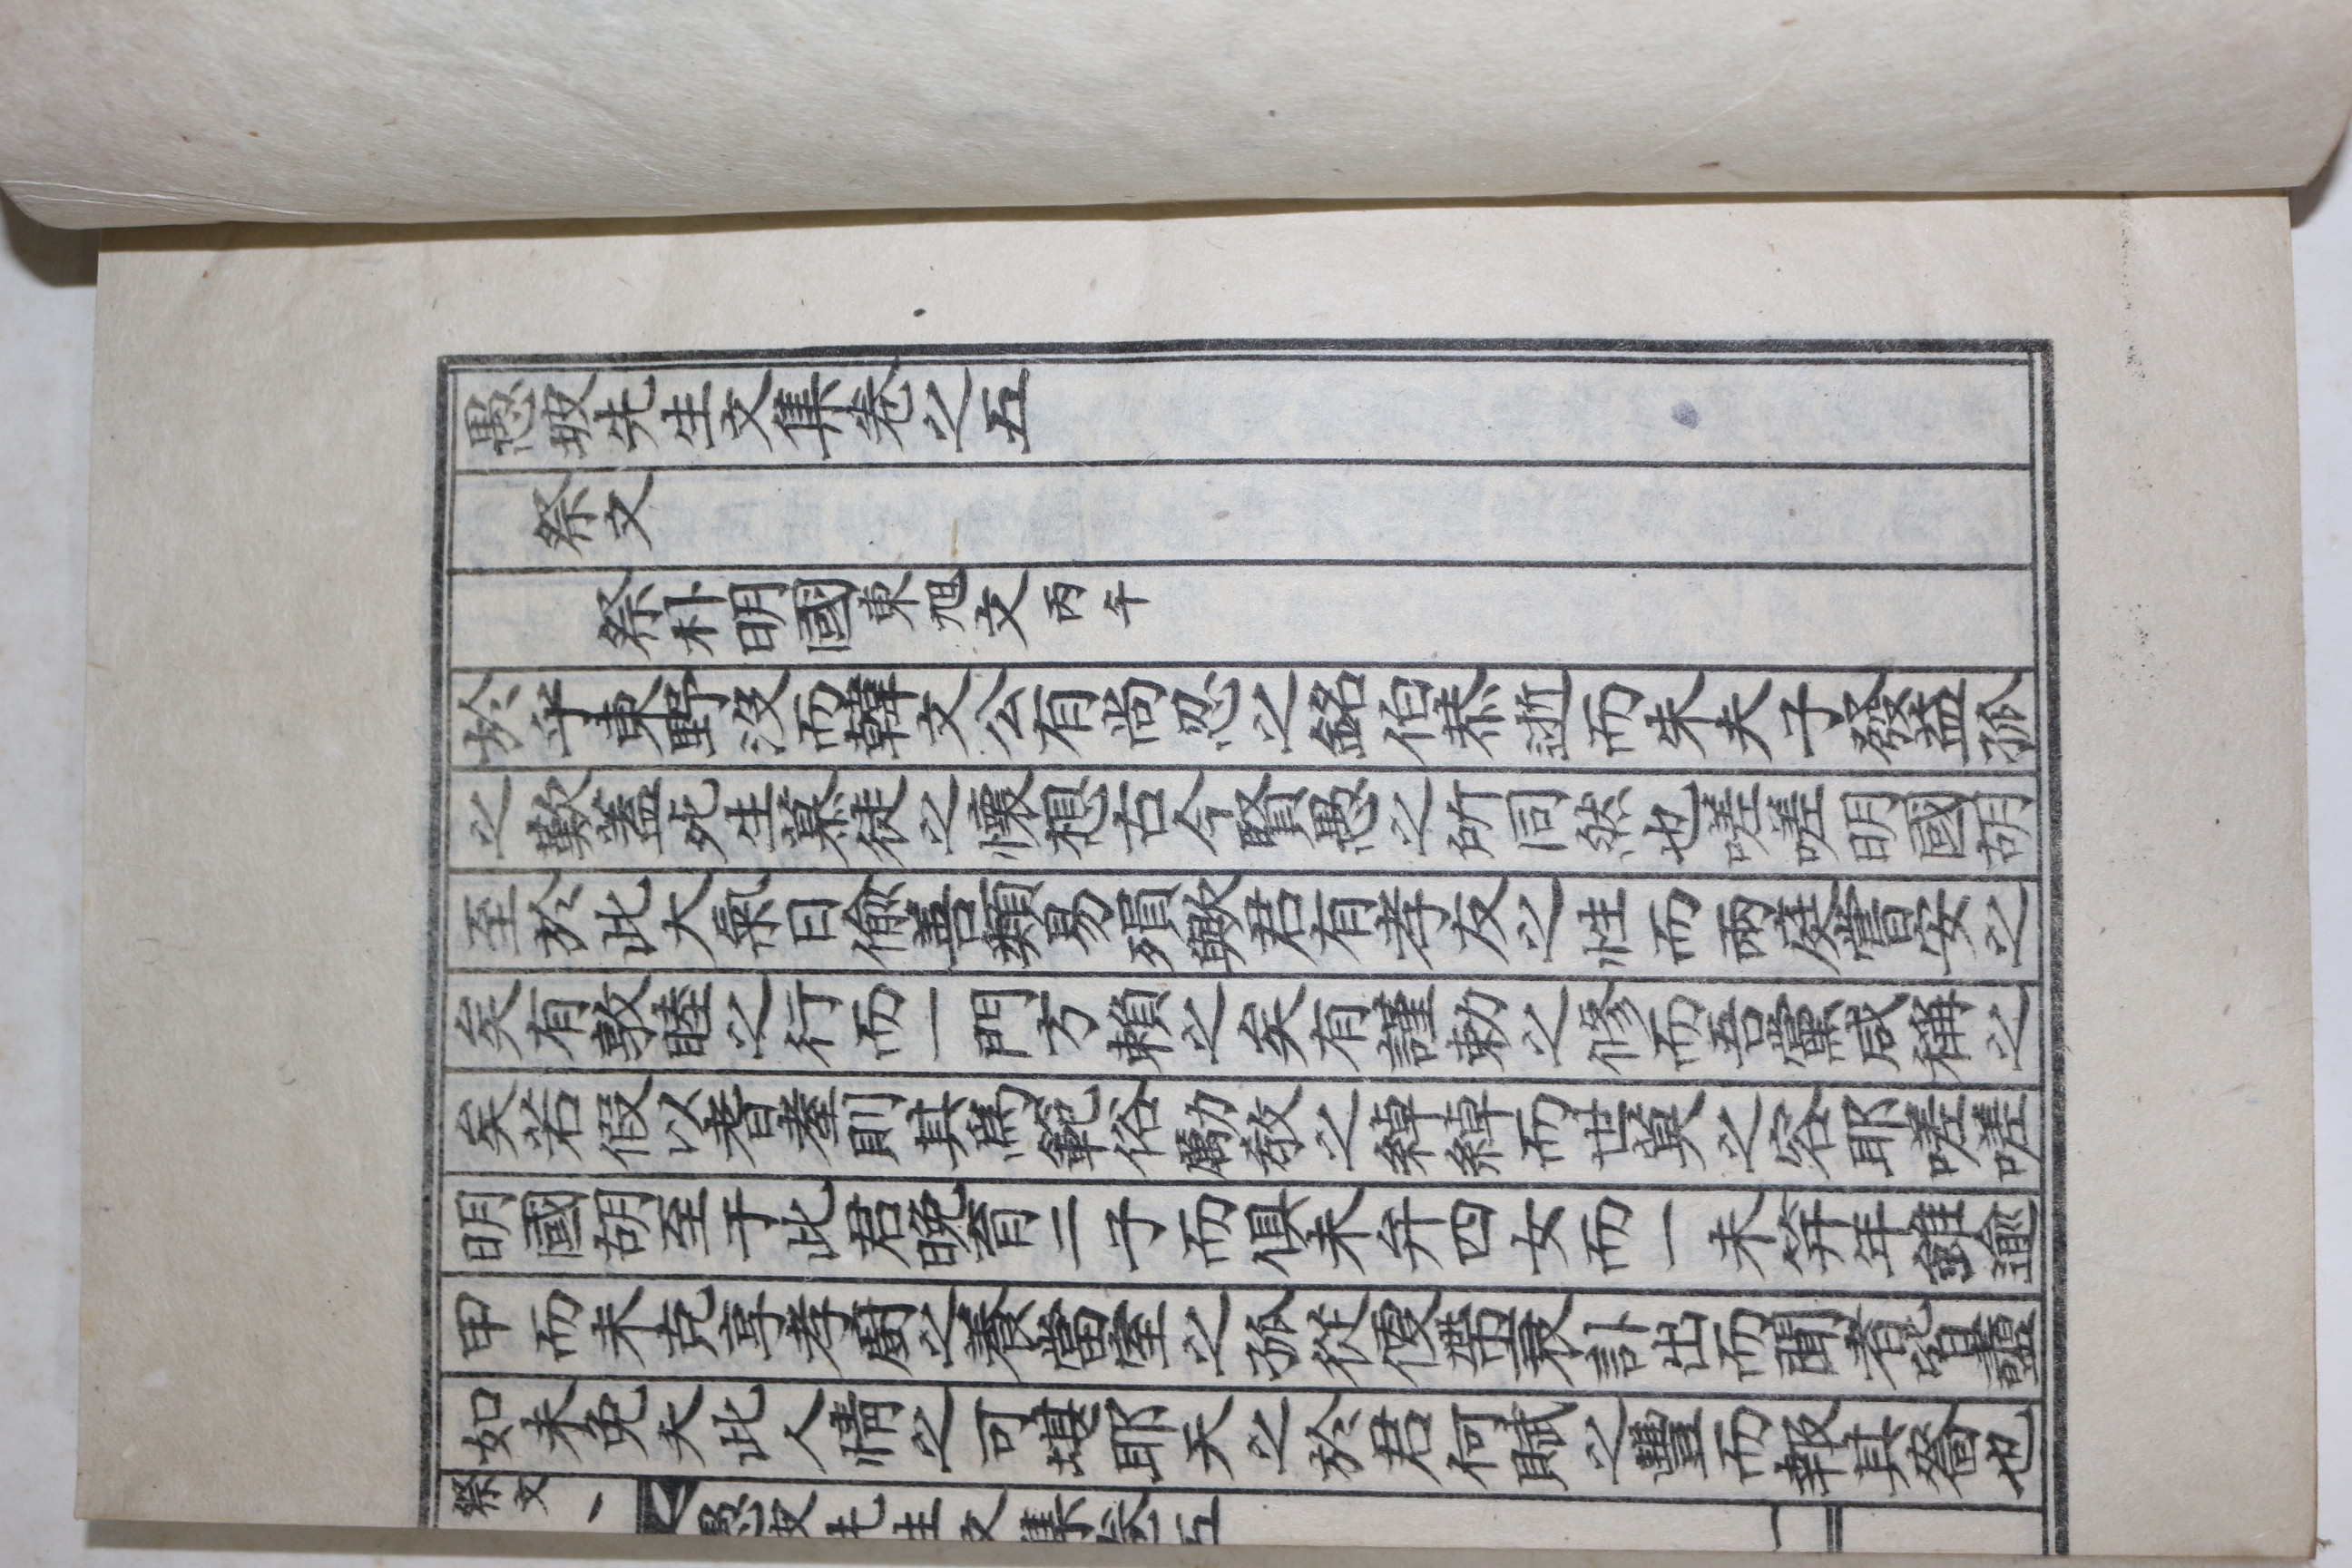 愚坡先生文集卷之五
祭文
祭朴明國東旭文丙午
於乎東野沒而韓文公有尚忍之銘伯恭逝而朱夫子發益孤
之歎蓋死生慕徒之懷想古今賢愚之所同然也嗟嗟明國胡
至於此大氣日偸善類易殞歟君有孝友之性而兩庭嘗安之
矣有敦睦之行而一門方賴之矣有謹勅之修而吾黨咸稱之
矣若假以耆耋則其爲範俗勵教之綽綽而世莫之容耶嗟嗟
明國胡至于此君晩育二子而俱未弁四女而一未笄年雖逾
甲而未克享孝廚之養當室之孤從優帶衰訃出而聞者皆盡
如未免夭此人情之可堪耶天之於君何賦之豐而報其嗇也
祭文 愚坡先生文集卷五 一